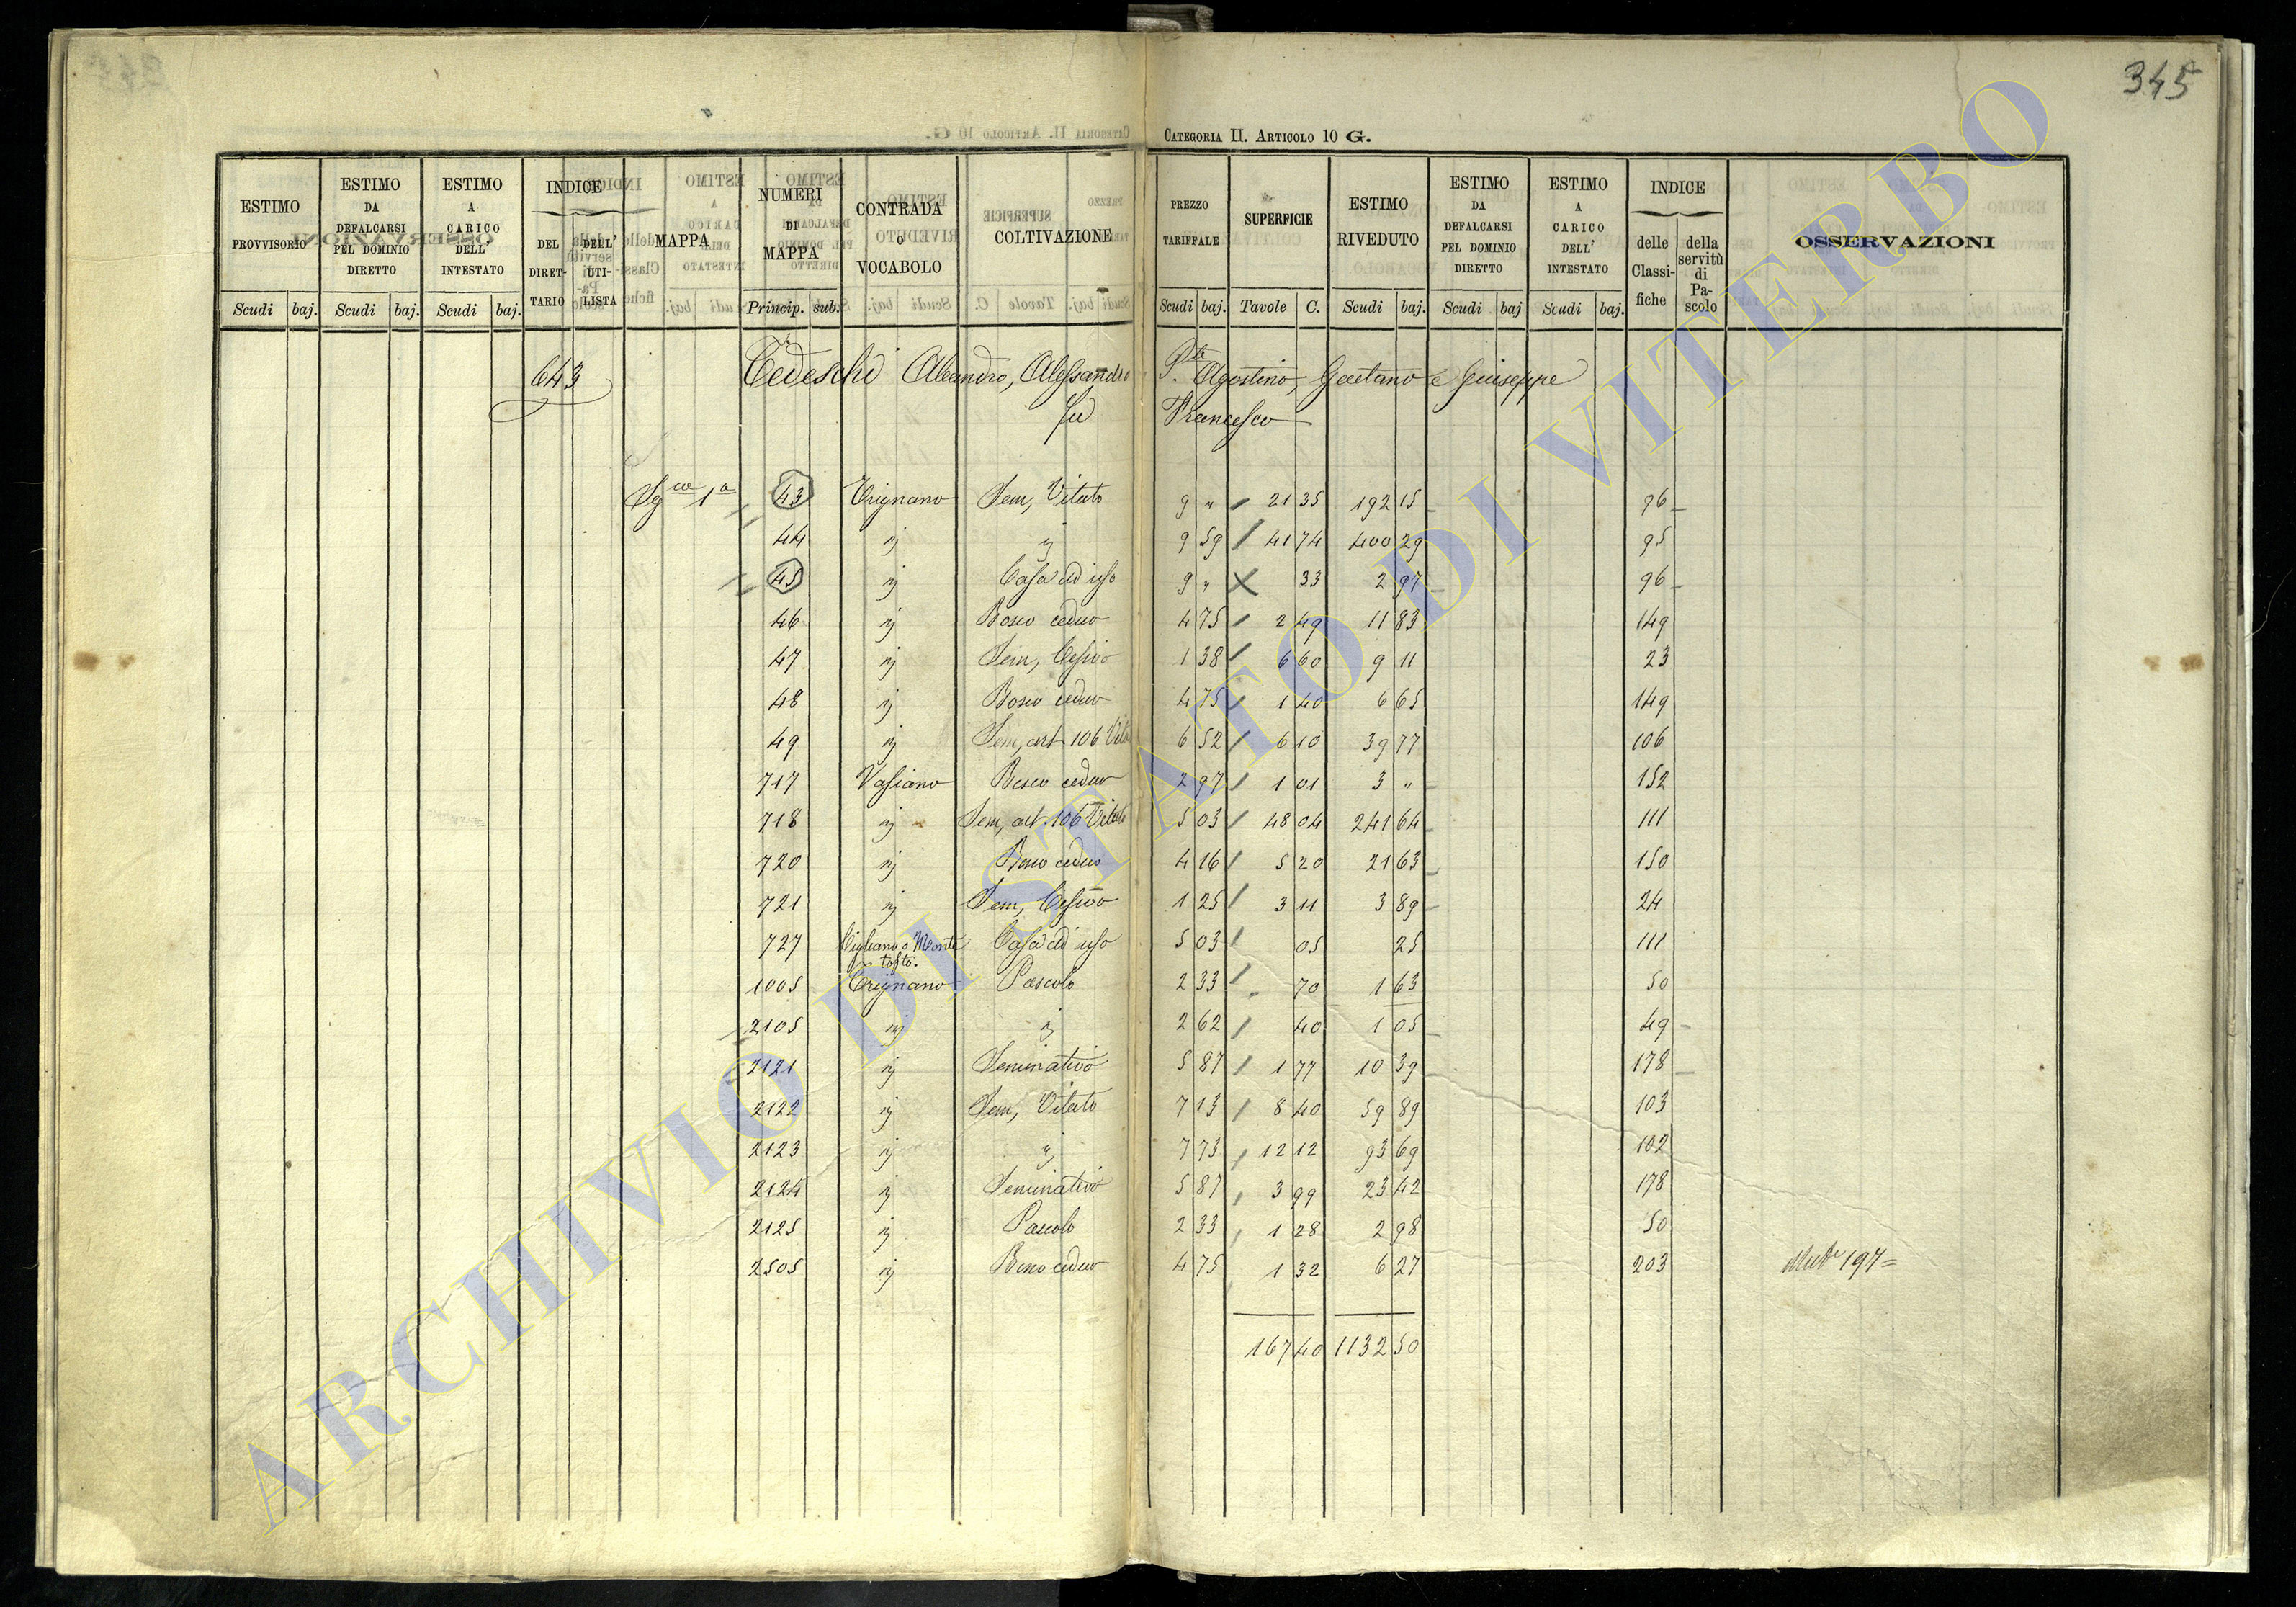 345
CATEGORIA II. ARTICOLO 10 G.
ESTIMO PROVVISORIO Scudi baj.
ESTIMO DA DEFALCARSI PEL DOMINIO DIRETTO Scudi baj.
ESTIMO A CARICO DELL' INTESTATO Scudi baj.
INDICE DEL DIRET-TARIO DELL' UTI-LISTA
MAPPA
NUMERI DI MAPPA Princip. sub.
CONTRADA O VOCABOLO
COLTIVAZIONE
PREZZO TARIFFALE Scudi baj.
SUPERFICIE Tavole C.
ESTIMO RIVEDUTO Scudi baj.
ESTIMO DA DEFALCARSI PEL DOMINIO DIRETTO Scudi baj
ESTIMO A CARICO DELL' INTESTATO Scudi baj.
INDICE delle Classi-fiche della servitù di Pa-scolo
OSSERVAZIONI
643 Tedeschi Aleandro, Alessandro Pte Agostino, Gaetano e Giuseppe
fu Francesco
Sgue 1a 43 Trignano Sem, Vitato 9 " 21 35 192 15 96
44 ij ij 9 59 41 74 400 29 95
45 ij Casa ad uso 9 " 33 2 97 96
46 ij Bosco ceduo 4 75 2 49 11 83 149
47 ij Sem, Cesivo 1 38 6 60 9 11 23
48 ij Bosco ceduo 4 75 1 40 6 65 149
49 ij Sem, art 106 Vita 6 52 6 10 39 77 106
717 Vasiano Bosco ceduo 2 97 1 01 3 " 152
718 ij Sem, art 106 Vitato 5 03 48 04 241 64 111
720 ij Bosco ceduo 4 16 5 20 21 63 150
721 ij Sem, Cesivo 1 25 3 11 3 89 24
727 Cigliano o Monte tosto. Casa ad uso 5 03 05 25 111
1005 Trignano Pascolo 2 33 70 1 63 50
2105 ij ij 2 62 40 1 05 49
2121 ij Seminativo 5 87 1 77 10 39 178
2122 ij Sem, Vitato 7 13 8 40 59 89 103
2123 ij ij 7 73 12 12 93 69 102
2124 ij Seminativo 5 87 3 99 23 42 178
2125 ij Pascolo 2 33 1 28 2 98 50
2505 ij Bosco ceduo 4 75 1 32 6 27 203 197
167 40 1132 50
ARCHIVIO DI STATO DI VITERBO